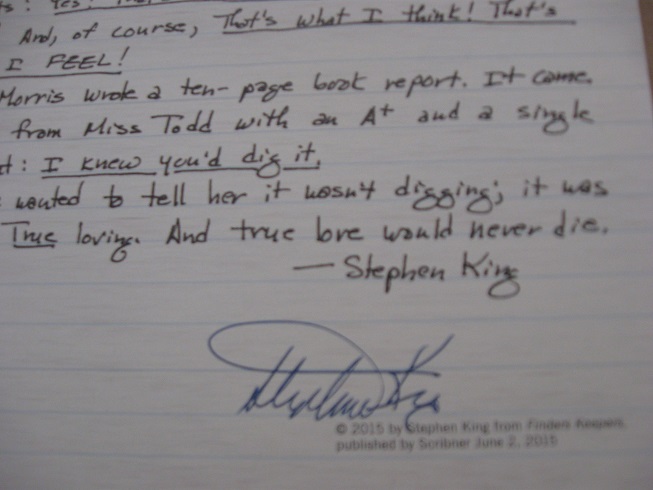 Yes!
And, of course, That's what I think! That's
I FEEL!
Morris wrote a ten-page book report. It came
from Miss Todd with an A+ and a single
t: I knew you'd dig it.
wanted to tell her it wasn't digging; it was
True loving. And true love would never die.
— Stephen King
Stephen King
© 2015 by Stephen King from Finders Keepers,
published by Scribner June 2, 2015